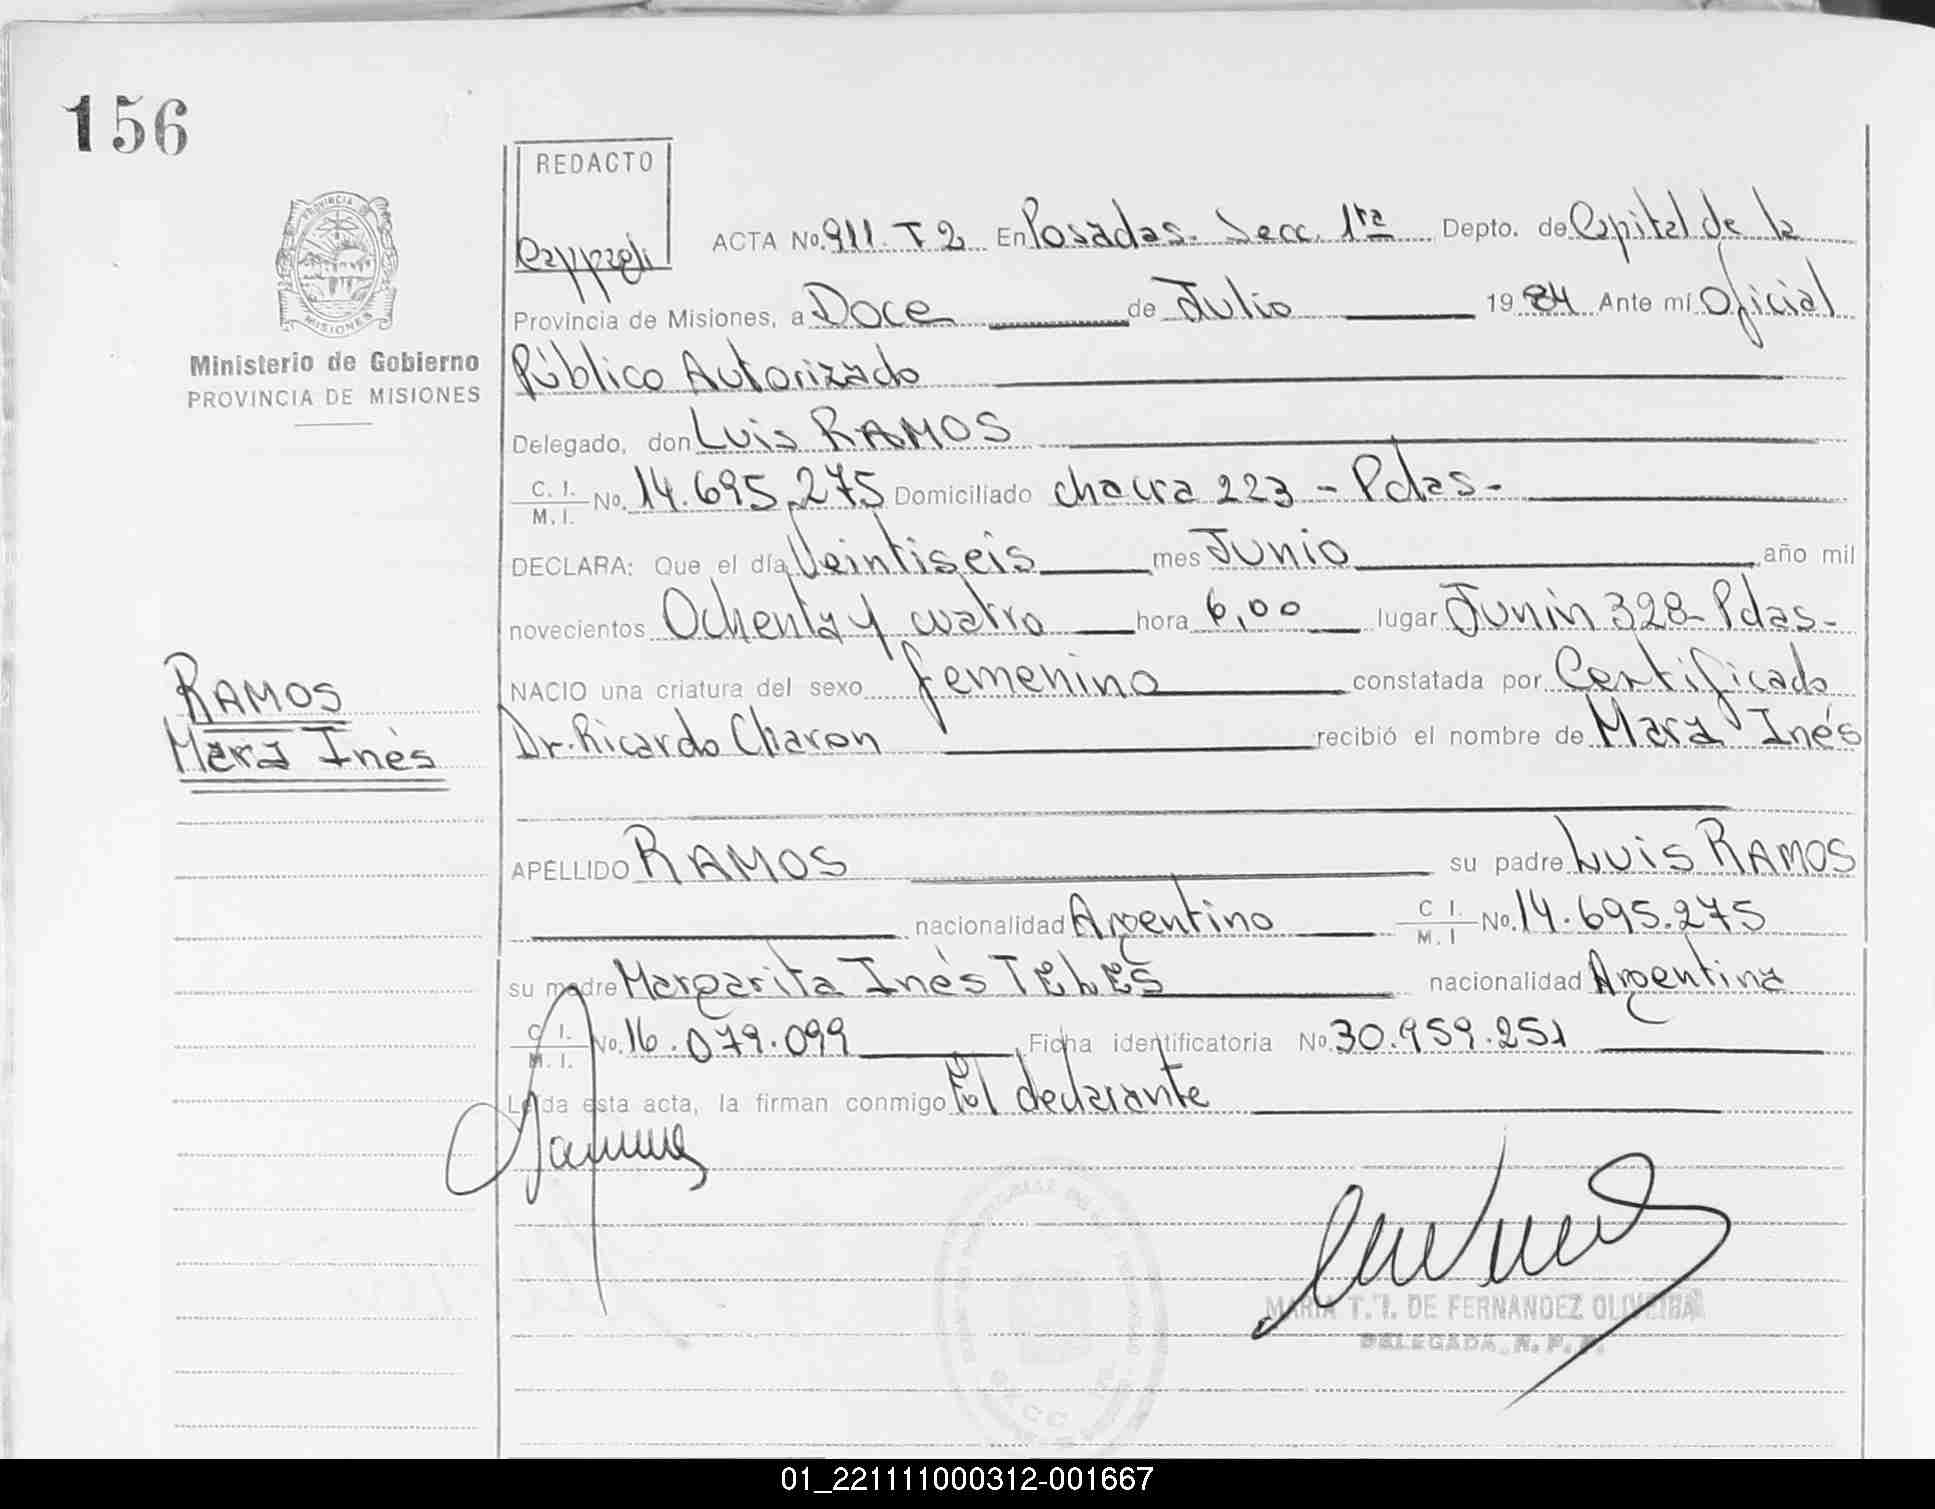 156
REDACTO
PROVINCIA DE
MISIONES
Ministerio de Gobierno
PROVINCIA DE MISIONES
ACTA No. 911. T 2 En Posadas. Secc. 1ra Depto. de Capital de la
Provincia de Misiones, a Doce de Julio 19 84 Ante mí Oficial
Público Autorizado
Delegado, don Luis RAMOS
C. I. M. I. No. 14.695.275 Domiciliado chacra 223 - Pdas-
DECLARA: Que el día Veintiseis mes Junio año mil
novecientos Ochenta y cuatro hora 6,00 lugar Junin 328- Pdas-
NACIO una criatura del sexo femenino constatada por Certificado
Dr. Ricardo Charon recibió el nombre de Mara Inés
RAMOS
Mara Inés
APELLIDO RAMOS su padre Luis RAMOS
nacionalidad Argentino C I. M. I No. 14.695.275
su madre Margarita Inés TELES nacionalidad Argentina
C. I. M. I. No. 16.079.099 Ficha identificatoria No. 30.959.251
Leída esta acta, la firman conmigo El declarante
MARIA T. I. DE FERNANDEZ OLIVEIRA
DELEGADA R. P. P.
SECC
01_221111000312-001667